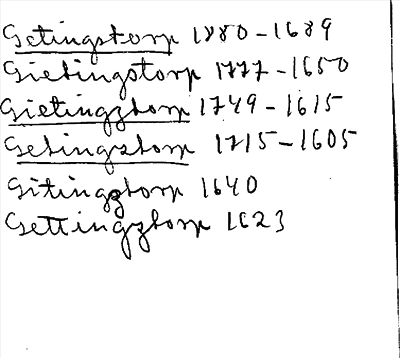 Getingstorp 1880-1689
Gietingstorp 1777-1650
Gietingztorp 1749-1615
Getingztorp 1715-1605
Gitingztorp 1640
Gettingztorp 1623